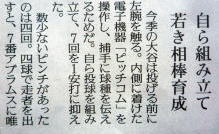 自ら組み立て
若き相棒育成
今季の大谷は投げる前に
左腕を触る。内側に着けた
電子機器「ピッチコム」を
操作し、捕手に球種を伝え
るためだ。自ら投球を組み
立て、7回を1安打に抑え
た。
数少ないピンチがあった
のは四回。四球で走者を出
すと、7番アブラムスに唯